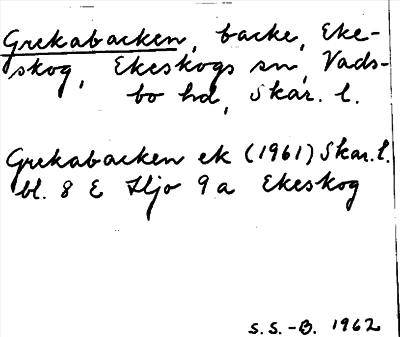 Grekabacken, backe, Eke-
skog, Ekeskogs sn, Vads-
bo hd, Skar. l.
Grekabacken ek (1961) Skar. l.
bl. 8 E Hjo 9a Ekeskog
S.S.-B. 1962